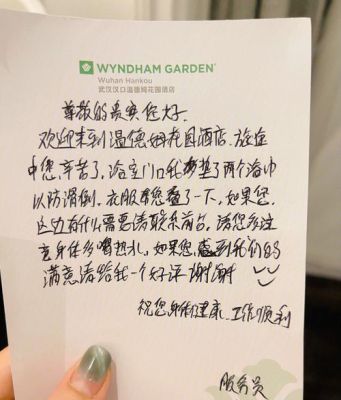 WYNDHAM GARDEN®
Wuhan Hankou
武汉汉口温德姆花园酒店
尊敬的贵宾您好
欢迎来到温德姆花园酒店.旅途
中您辛苦了,浴室门口我垫了两个浴巾
以防滑倒,衣服帮您叠了一下,如果您
这边有什么需要请联系前台,请您多注
意身体多喝热水,如果您感到我们的
满意请给我一个好评谢谢
祝您身体健康、工作顺利
服务员